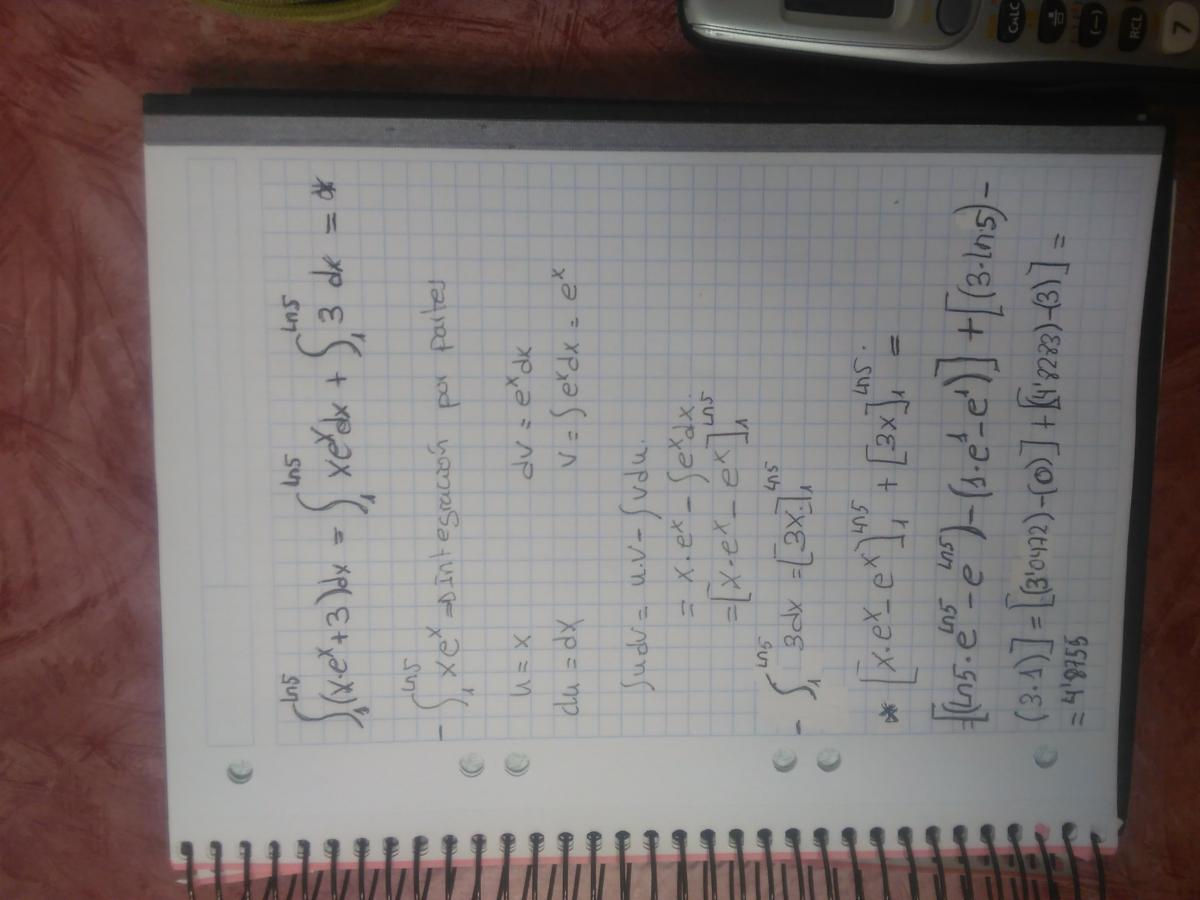 ∫₁^{Ln5} (x·eˣ+3)dx = ∫₁^{Ln5} xeˣdx + ∫₁^{Ln5} 3 dx = *
- ∫₁^{Ln5} xeˣ ⇒ integración por partes
u = x dv = eˣdx
du = dx v = ∫eˣdx = eˣ
∫udv = u.v - ∫vdu.
= x·eˣ - ∫eˣdx.
= [x·eˣ - eˣ]₁^{Ln5}
- ∫₁^{Ln5} 3dx = [3x.]₁^{Ln5}
* [x·eˣ - eˣ)]₁^{Ln5} + [3x]₁^{Ln5}. =
=[(Ln5·e^{Ln5} - e^{Ln5}) - (1·e¹ - e¹)] + [(3·Ln5) -
(3·1)] = [(3'0472)-(0)] + [(4'8283)-(3)] =
= 4'8755
CALC
(-)
RCL
7